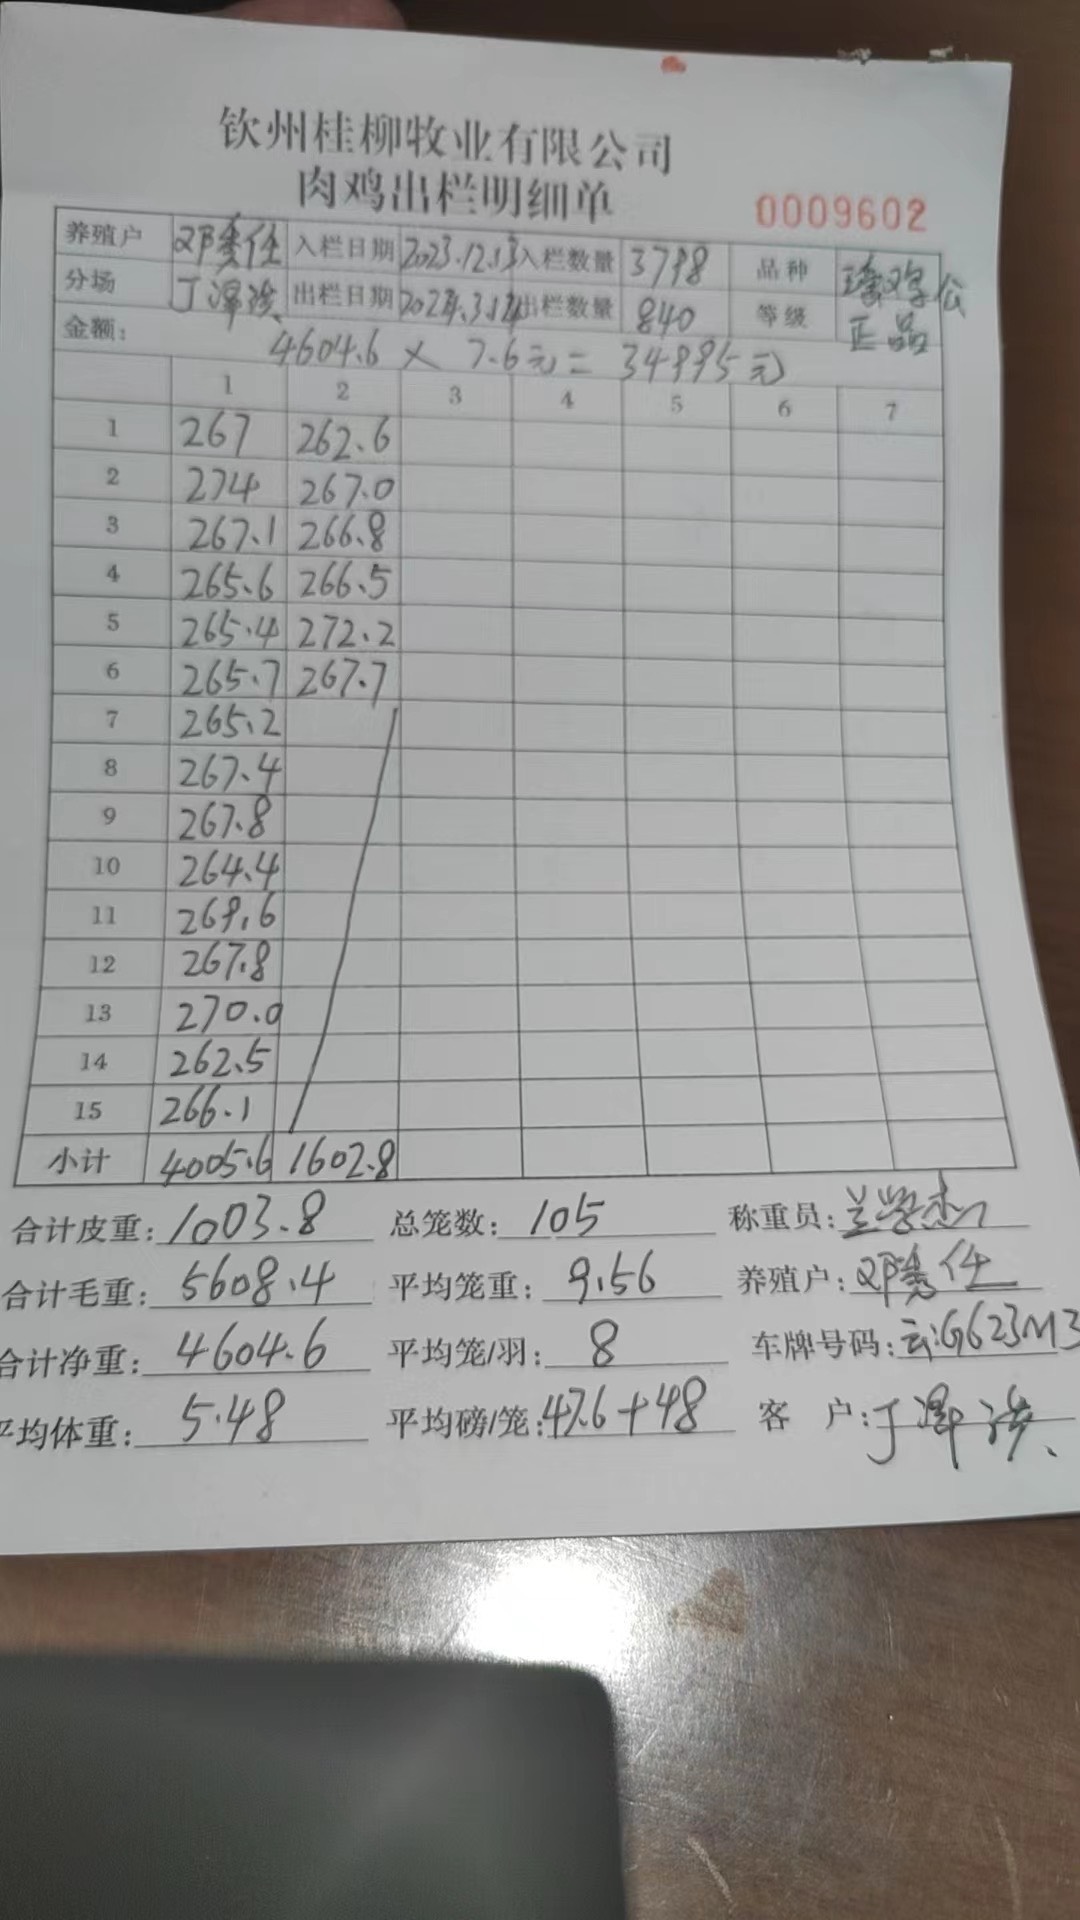 钦州桂柳牧业有限公司
肉鸡出栏明细单
0009602
养殖户 邓秀任 入栏日期 2023.12.13 入栏数量 3798 品种 鸡公
分场 丁泽洪 出栏日期 2024.3.14 出栏数量 840 等级 正品
金额: 4604.6 × 7.6元 = 34995元
1 2 3 4 5 6 7
1 267 262.6
2 274 267.0
3 267.1 266.8
4 265.6 266.5
5 265.4 272.2
6 265.7 267.7
7 265.2
8 267.4
9 267.8
10 264.4
11 269.6
12 267.8
13 270.0
14 262.5
15 266.1
小计 4005.6 1602.8
合计皮重: 1003.8 总笼数: 105 称重员: 兰学杰
合计毛重: 5608.4 平均笼重: 9.56 养殖户: 邓秀任
合计净重: 4604.6 平均笼/羽: 8 车牌号码: 云:G623M3
平均体重: 5.48 平均磅/笼: 47.6+48 客 户: 丁泽洪